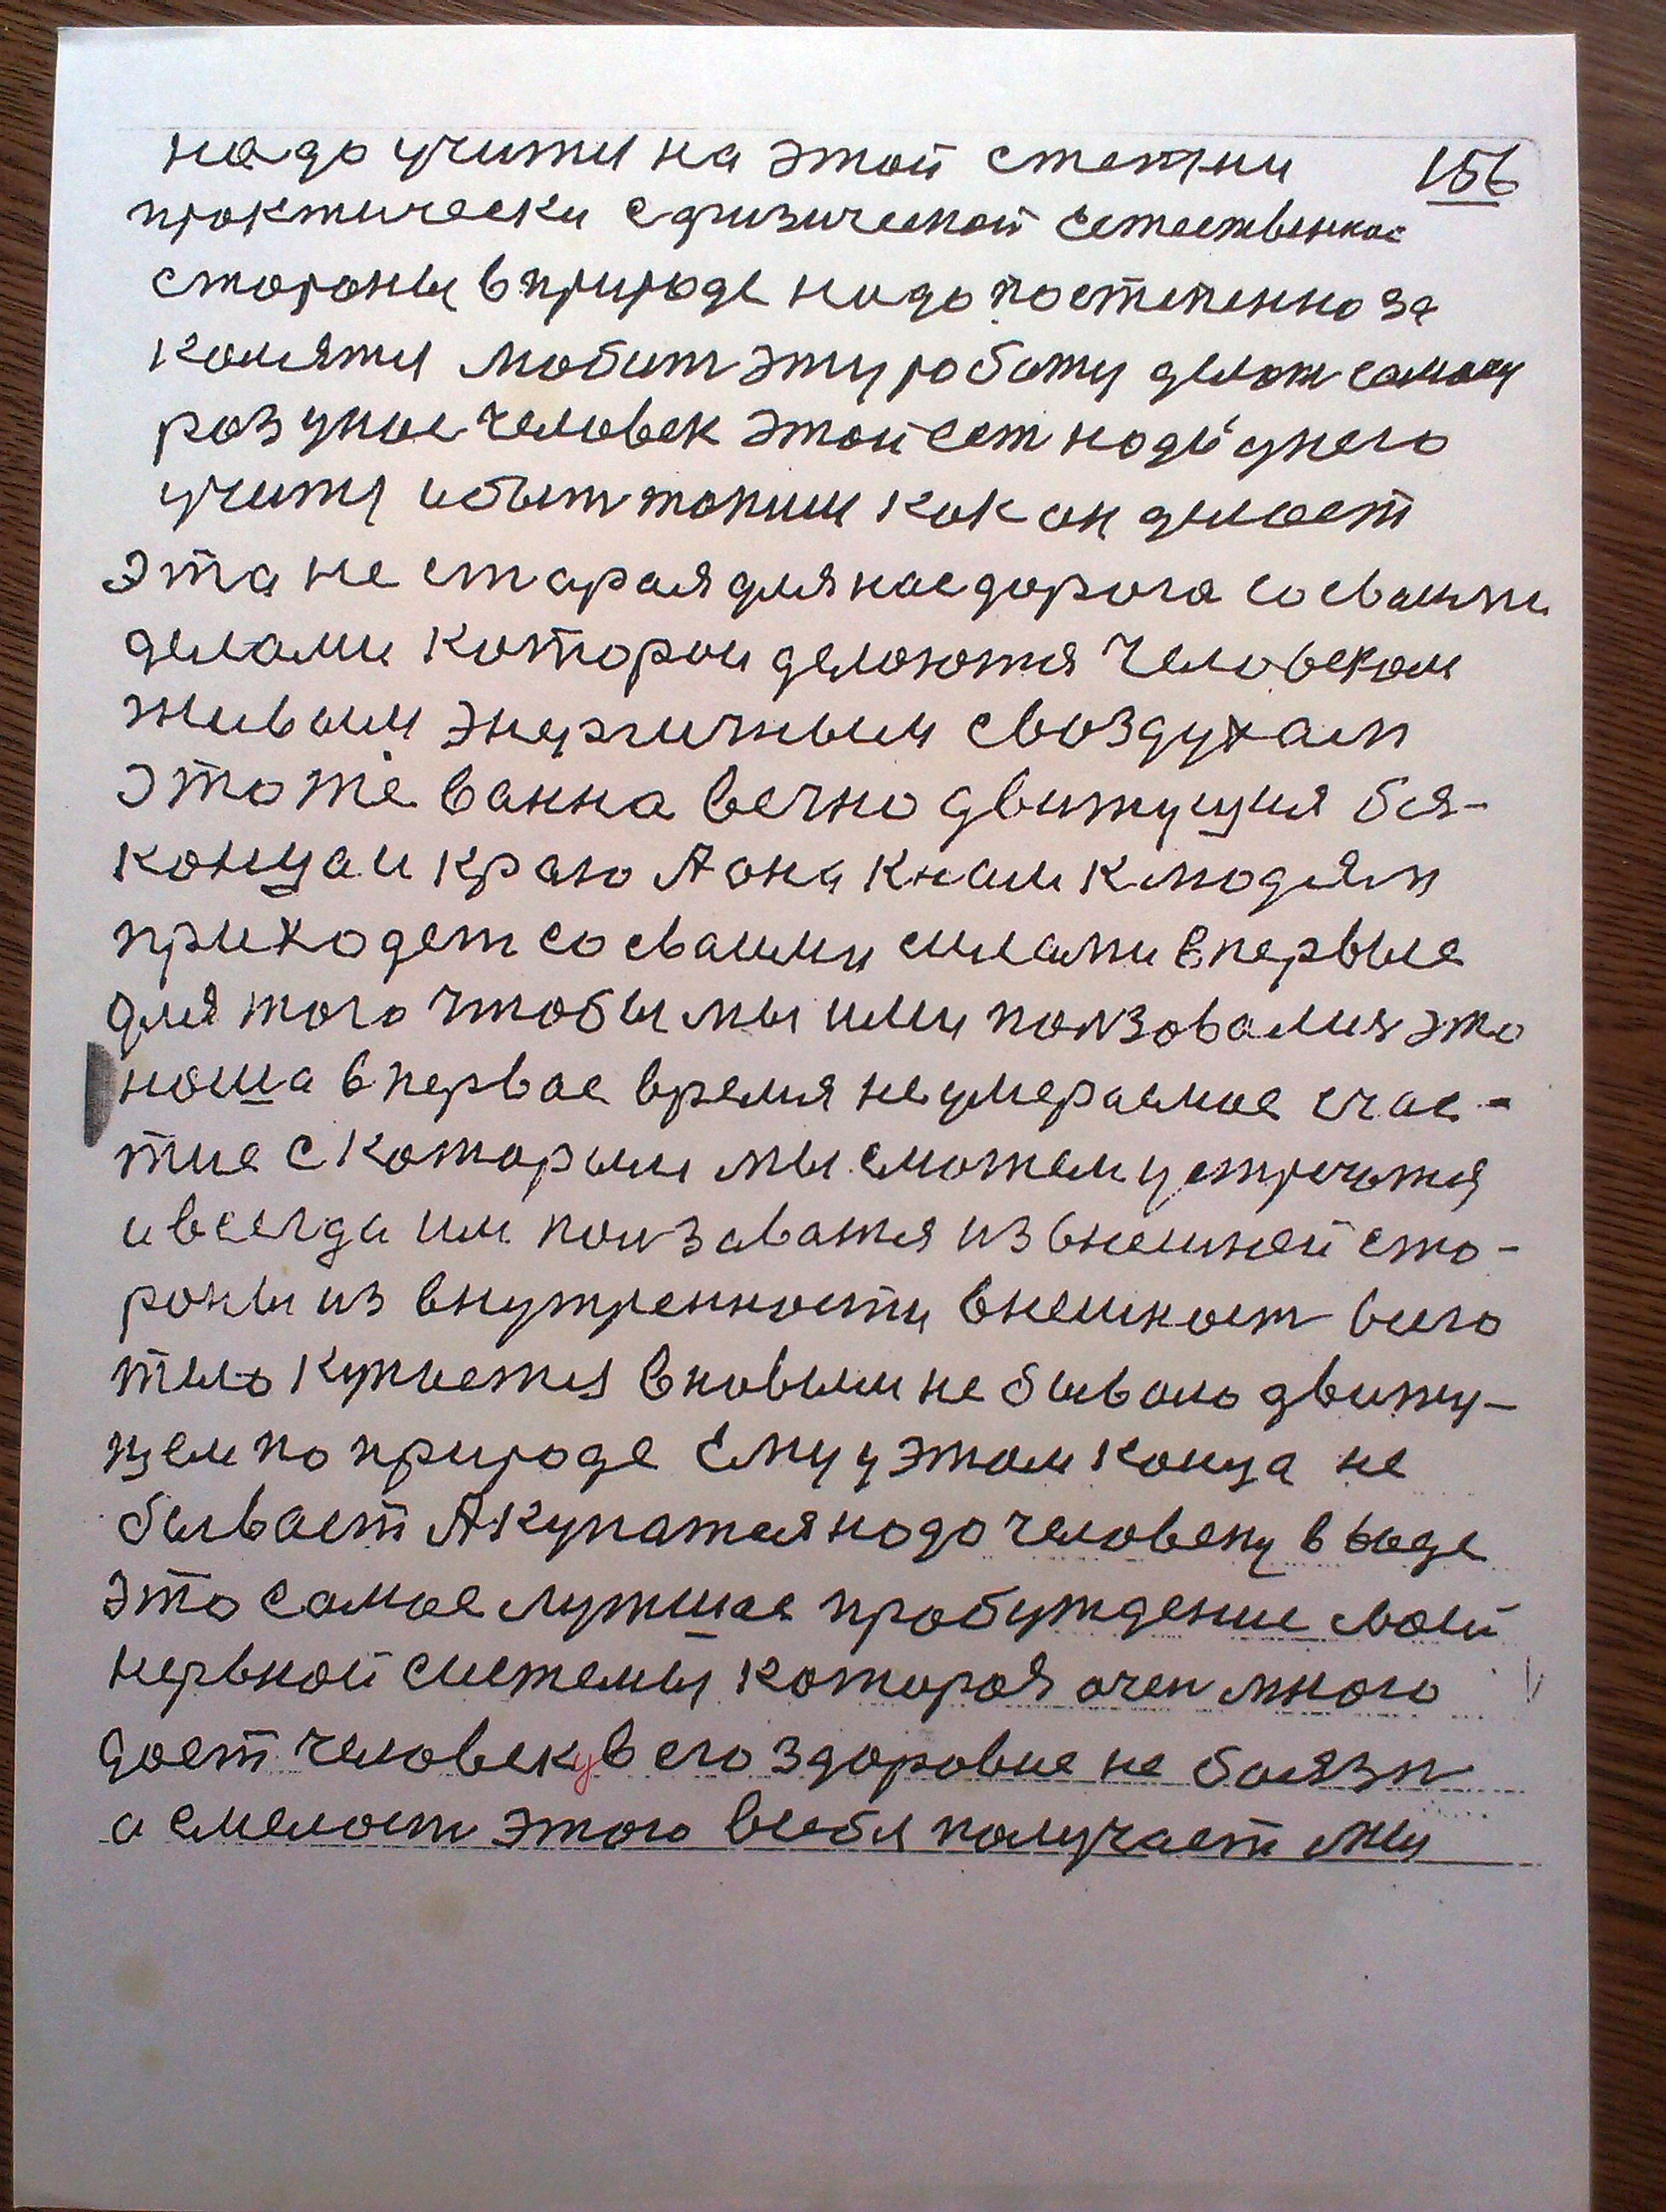 надо учится на этой степни 156
проктически с физической естественнае
стороны в природе надо постепенно за
колятся любит эту роботу делот самому
розумное человек этой ест нодо у него
учится и быт таким как он делоет
эта не старая для нас дорога со сваими
делами которои делоются человеком
живым энергичным с воздухам
это же ванна вечно движущия бес-
конца и краю А она к нам к людям
приходет со сваими силами впервые
для того чтобы мы ими ползовался это
ноша в первае время не умераемое счас-
тие с каторым мы сможем устречатся
и всегда им ползаватся из внешней сто-
роны из внутренности внешност вило
тело купается в новым не бывало движу-
щем по природе ему у этом конца не
бывает А купатся нодо человеку в воде
это самое лутшае пробуждение моей
нервной системы которая очен много
дает человеку в его здоровие не боязн
а смелост этого в себя получает мы